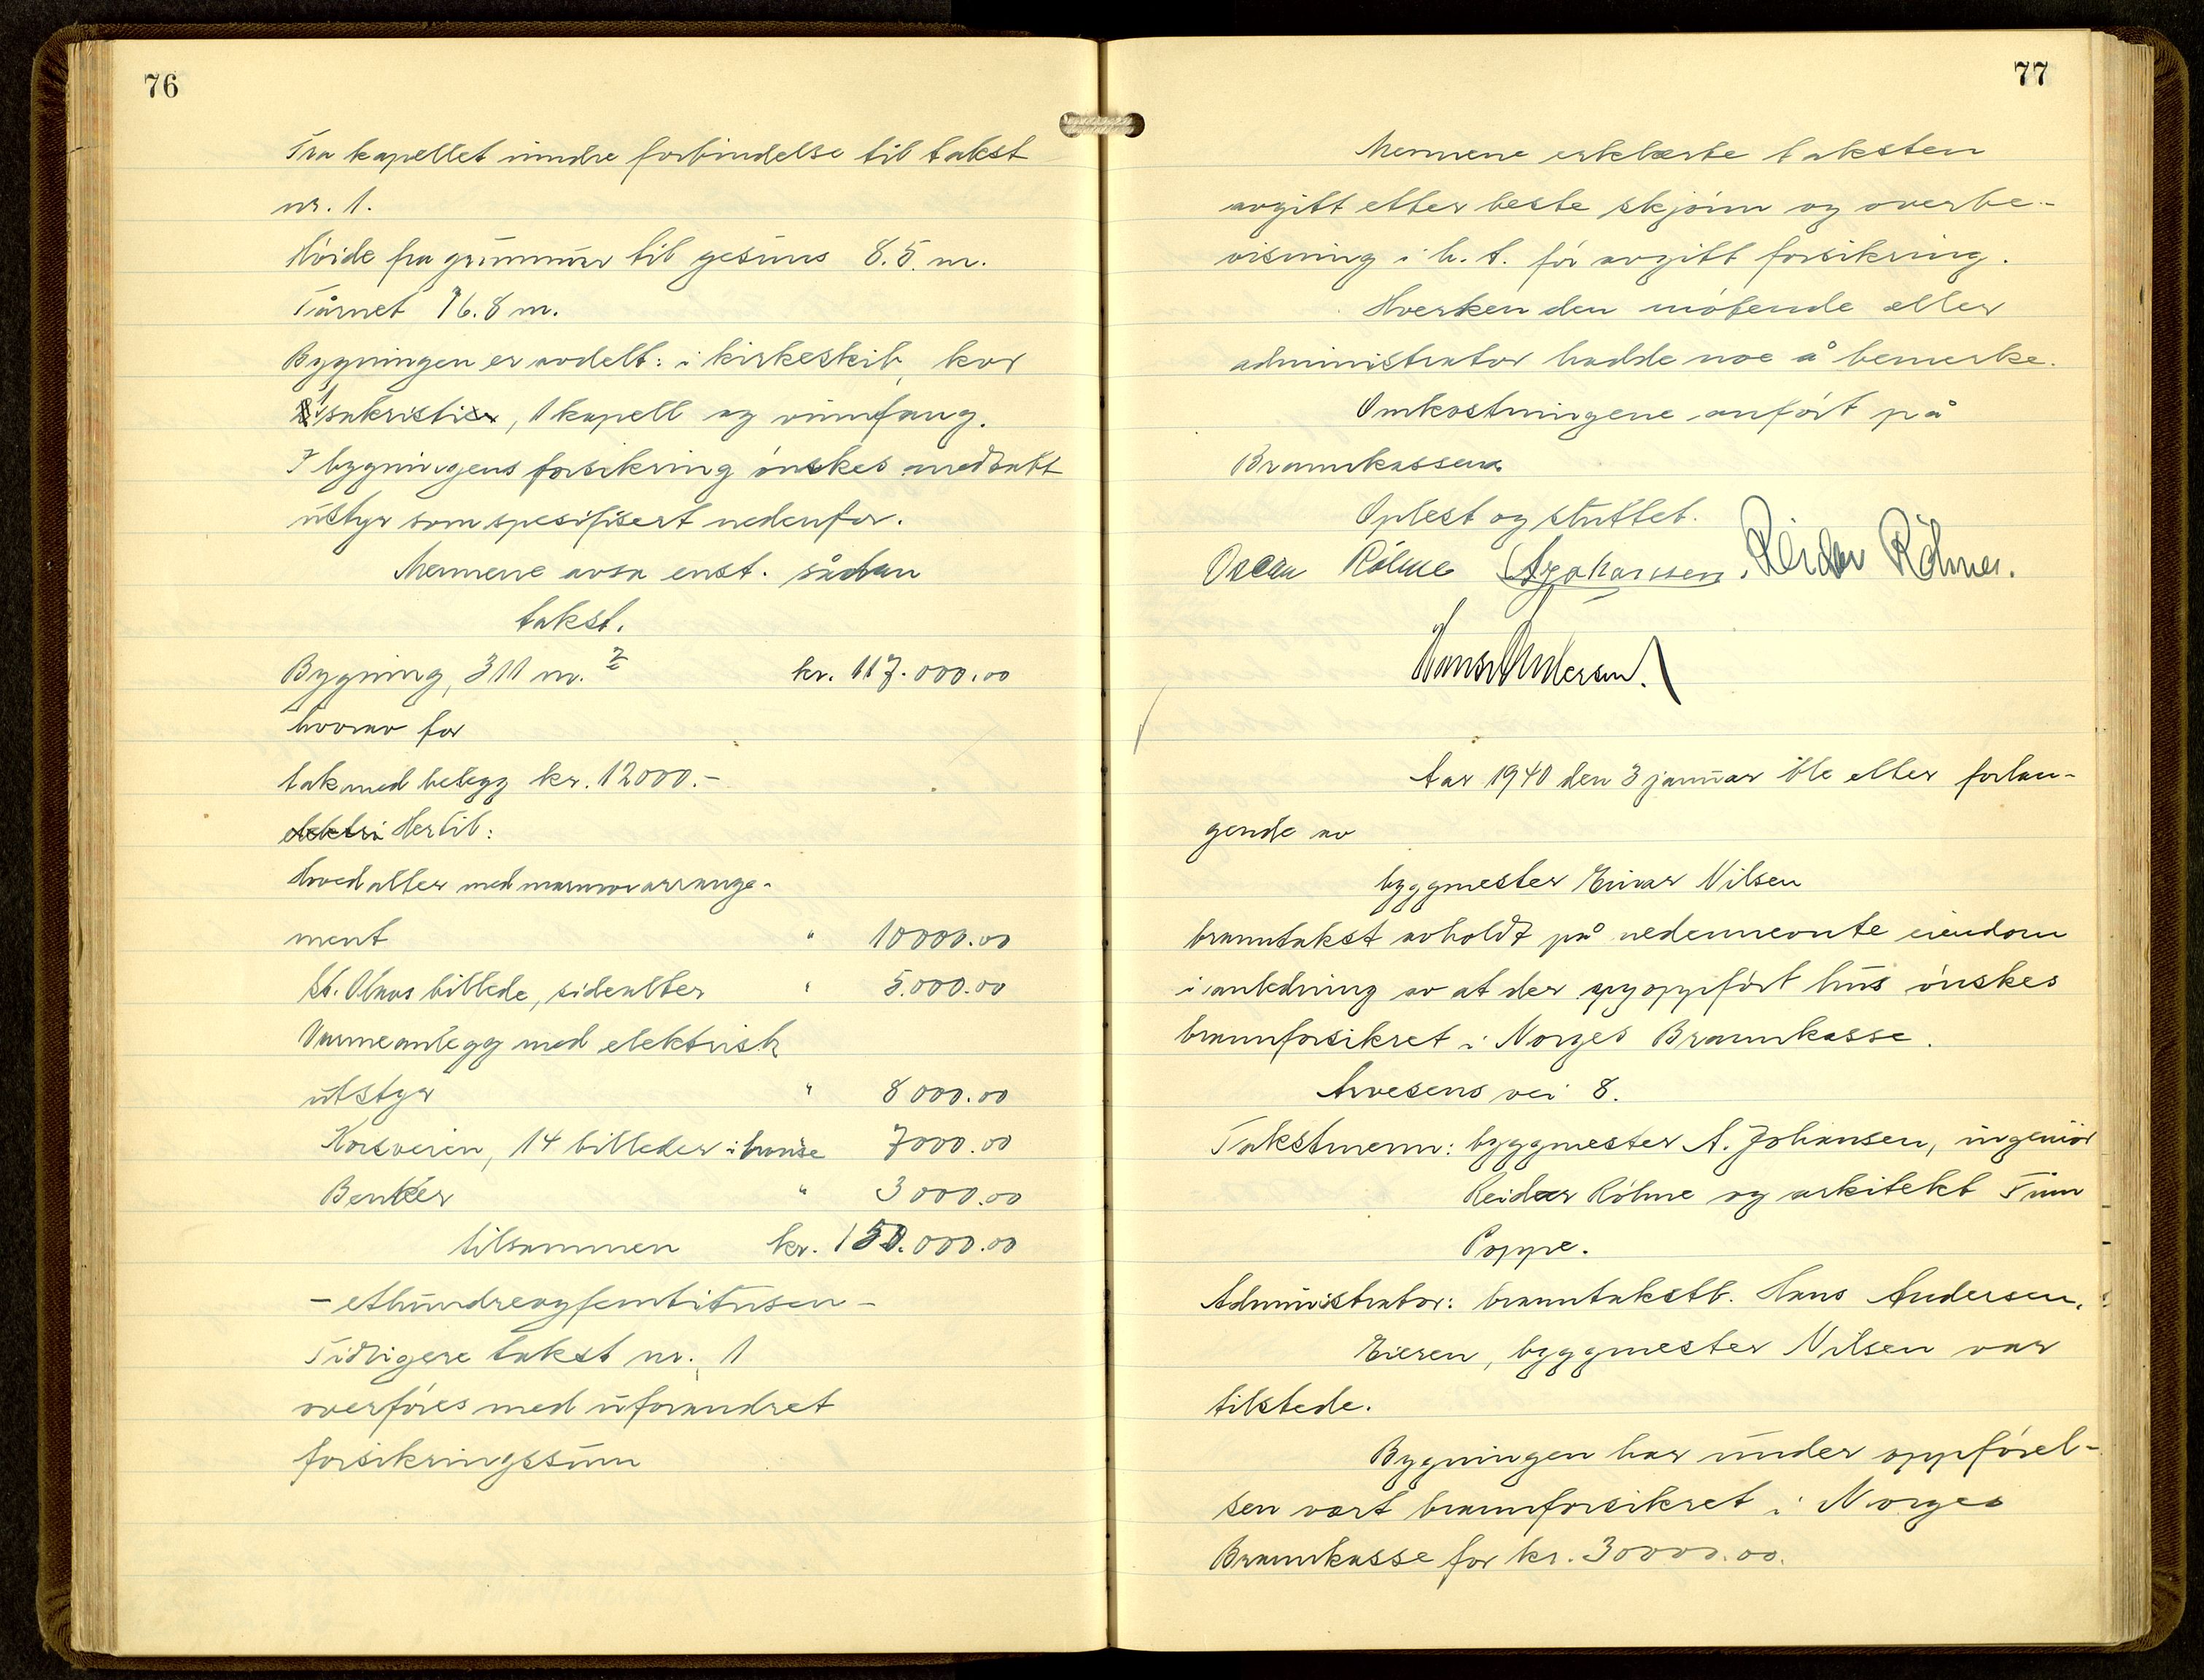 76
Fra kapellet inndre forbindelse til takst
nr. 1.
Höide fra grunnmur til gesims 8.5 m.
Tårnet 16.8 m.
Bygningen er avdelt: i kirkeskib, kor
1 sakristi, 1 kapell og vinnfang.
I bygningens forsikring önskes medtatt
utstyr som spesifisert nedenfor.
Mennene avsa enst. sådan
takst.
Bygning, 311 m.² kr. 117.000.00
hvorav for
tak med belegg kr. 12000.-
elektri Hertil:
Hovedalter med marmorarrange-
ment " 10000.00
St. Olavs billede, sidealter " 5.000.00
Varmeanlegg med elektrisk
utstyr " 8000.00
Korsveien, 14 billeder i 7000.00
Benker " 3000.00
tilsammen kr. 150.000.00
- ethundreogfemtitusen -
Tidligere takst nr. 1
overföres med uforandret
forsikringssum
77
Mennene erklærte taksten
avgitt etter beste skjönn og overbe-
visning i h. t. för avgitt forsikring.
Hverken den mötende eller
administrator hadde noe å bemerke.
Omkostningene anfört på
Brannkassen.
Oplest og sluttet.
Oscar Rölme A Johanssen. Reidar Röhme.
Hans Andersen.
Aar 1940 den 3 januar ble etter forlan-
gende av
byggmester Einar Nilsen
branntakst avholdt på nedennevnte eiendom
i anledning av at der nyoppfört hus önskes
brannforsikret i Norges Brannkasse.
Arvesens vei 8.
Takstmenn: byggmester A. Johansen, ingeniör
Reidar Röhme og arkitekt Finn
Poppe.
Administrator: branntakstb. Hans Andersen.
Eieren, byggmester Nilsen var
tilstede.
Bygningen har under oppförel-
sen vært brannforsikret i Norges
Brannkasse for kr. 30000.00.